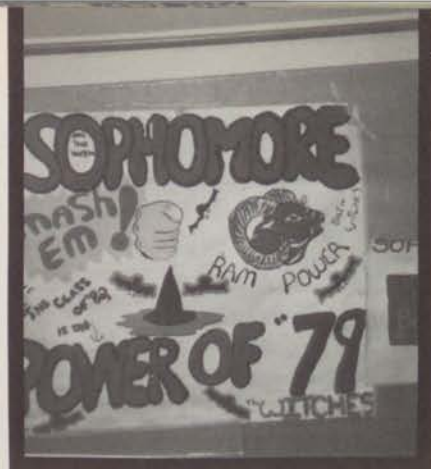 SOPHOMORE
MASH
EM!
RAM POWER
THE CLASS
OF '82
IS THE
POWER OF "79
THE WIITCHES
SOP